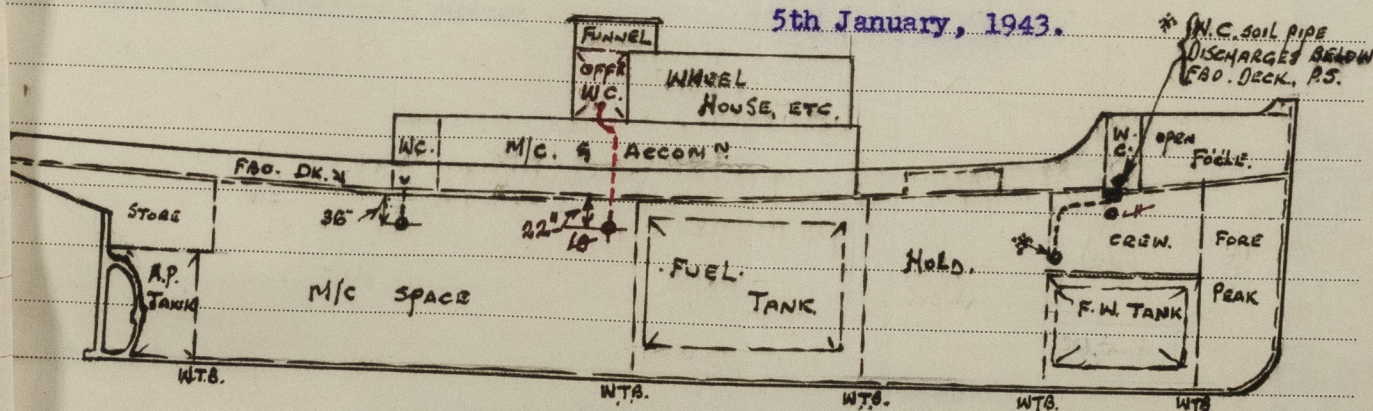 5th January, 1943.
* W.C. SOIL PIPE
DISCHARGES BELOW
FBD. DECK. P.S.
FUNNEL
OFFR
W.C.
WHEEL
HOUSE, ETC.
WC.
M/C. & ACCOMN.
W.
C.
OPEN
FO'CLE.
FBD. DK.
STORE
36"
22"
18
CREW.
FORE
PEAK
A.P.
TANK
M/C SPACE
FUEL
TANK
HOLD.
*
F.W. TANK
W.T.B.
W.T.B.
W.T.B.
W.T.B.
W.T.B.